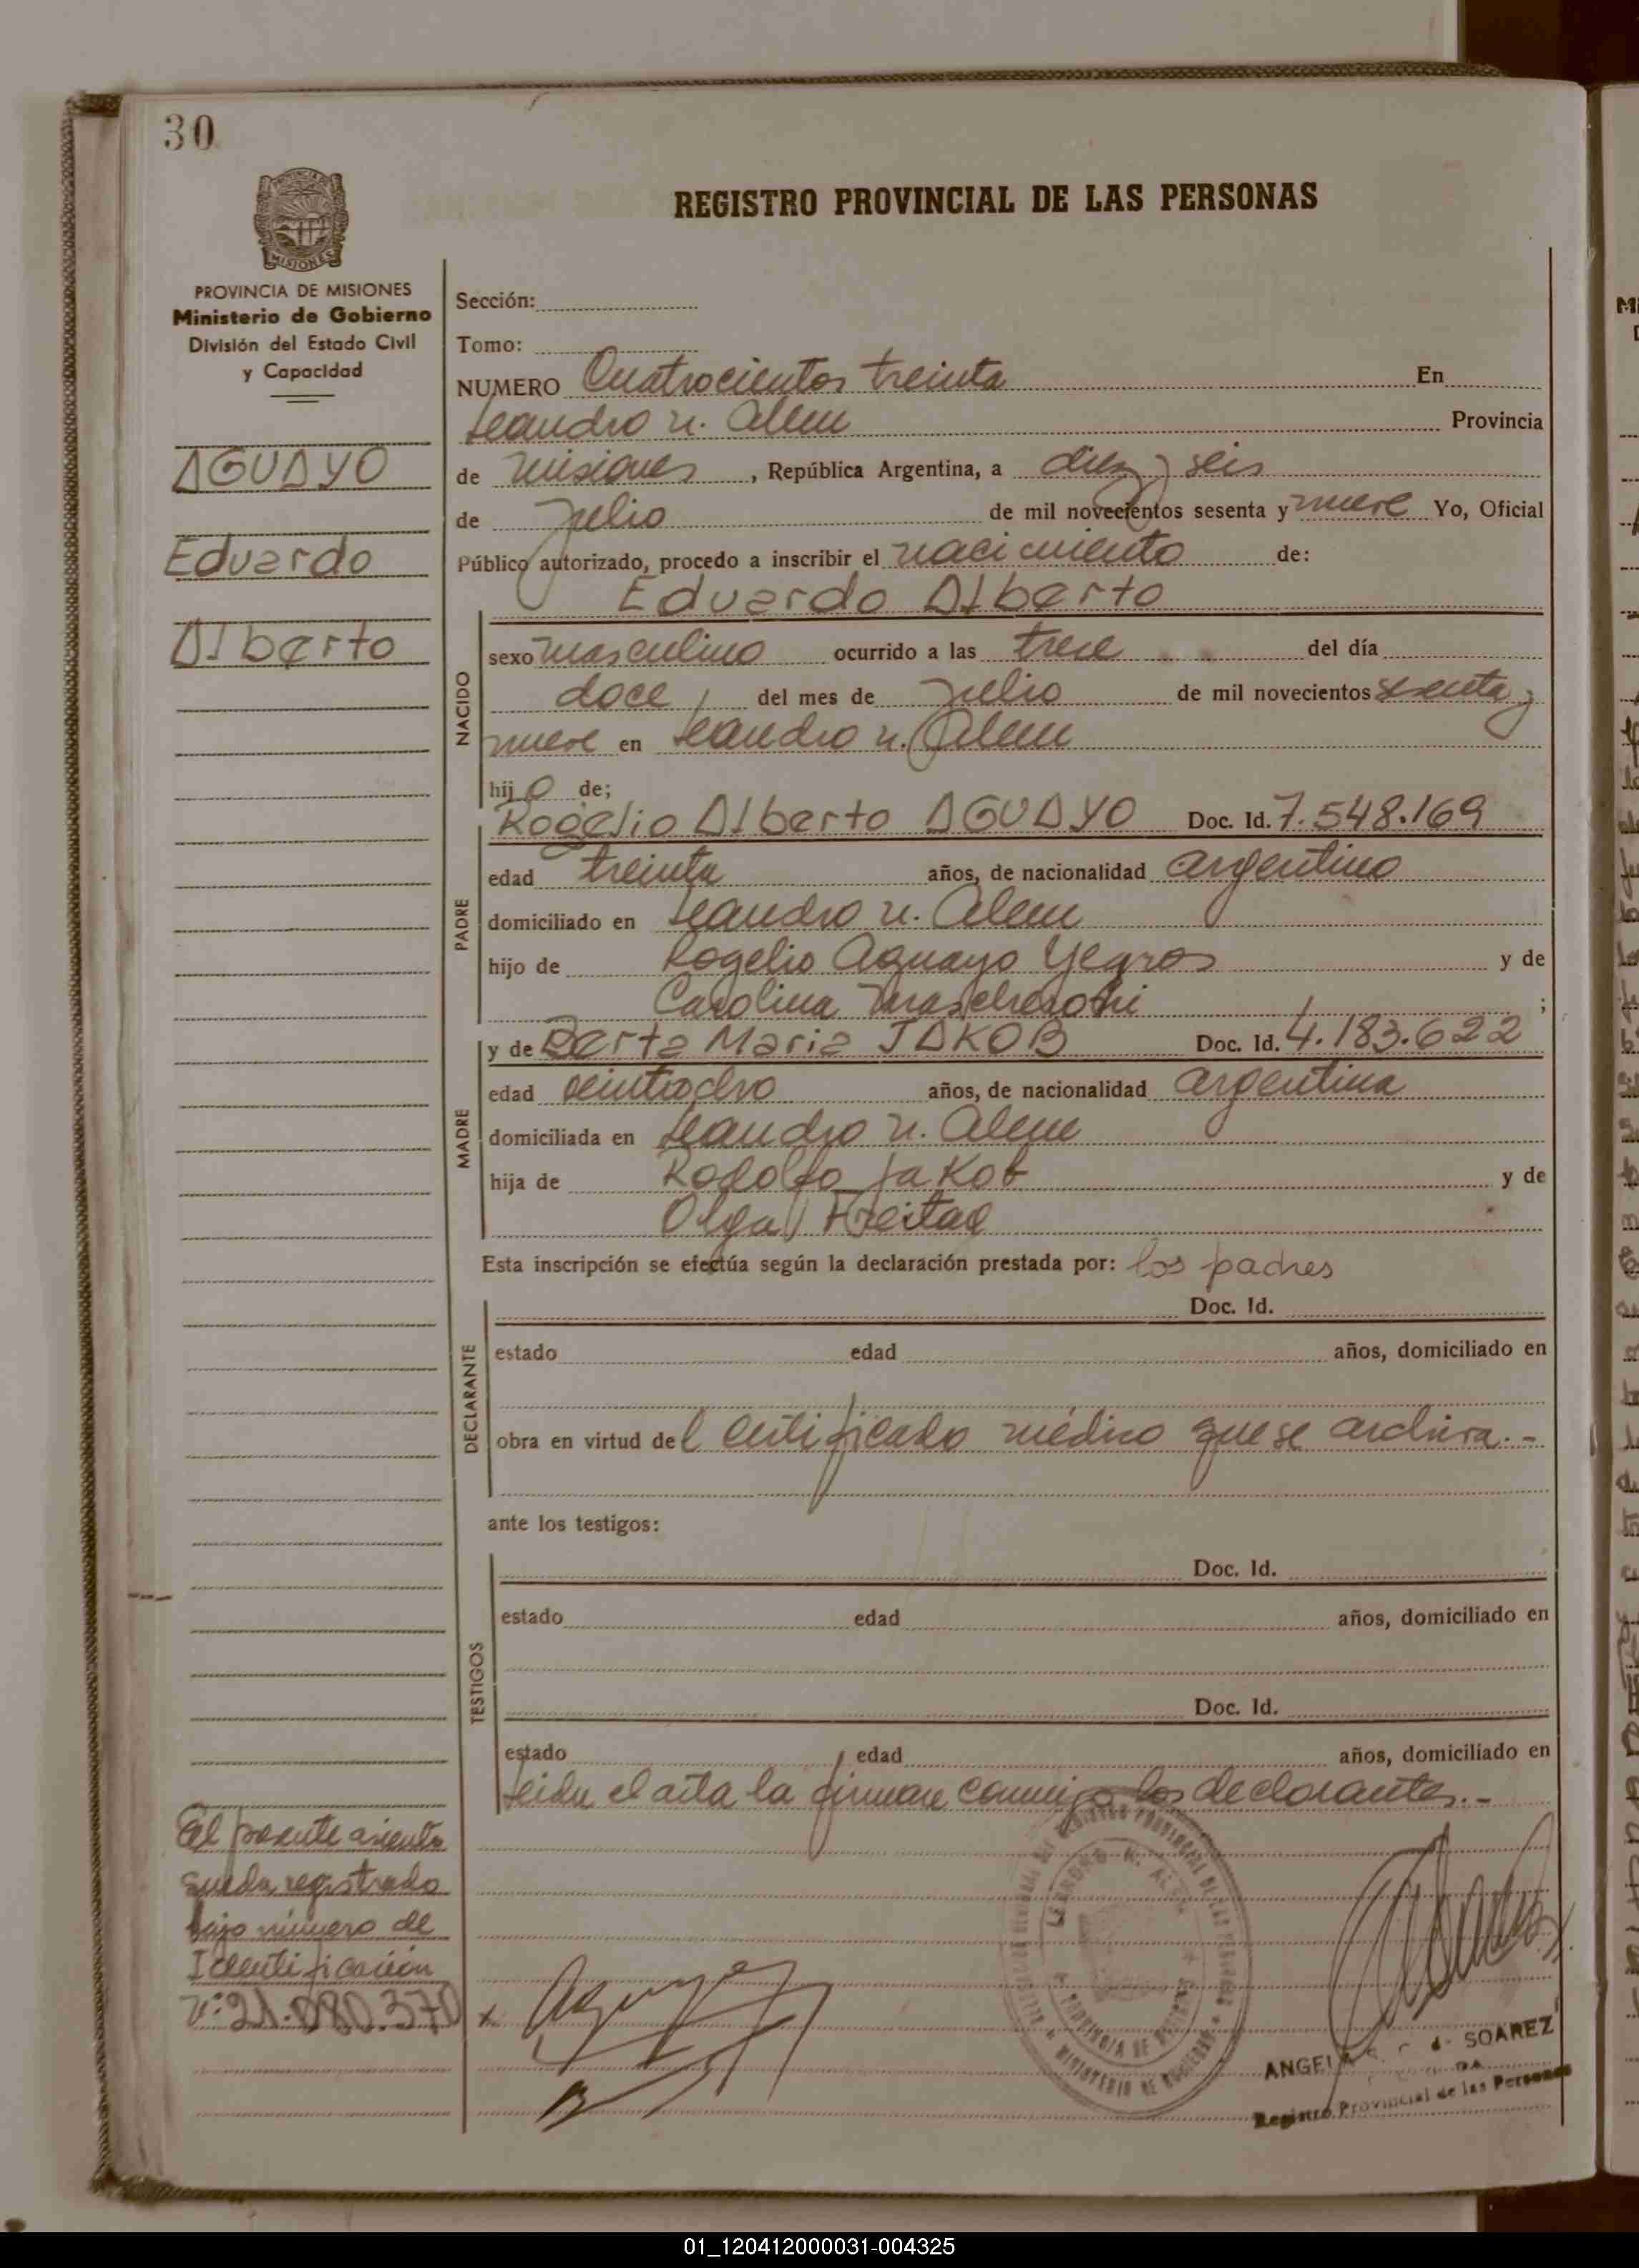 30
PROVINCIA DE MISIONES
MISIONES
REGISTRO PROVINCIAL DE LAS PERSONAS
PROVINCIA DE MISIONES
Ministerio de Gobierno
División del Estado Civil
y Capacidad
AGUAYO
Eduardo
Alberto
Sección:
Tomo:
NUMERO Cuatrocientos treinta En
Leandro N. Alem Provincia
de Misiones, República Argentina, a diez y seis
de Julio de mil novecientos sesenta y nueve Yo, Oficial
Público autorizado, procedo a inscribir el nacimiento de:
Eduardo Alberto
NACIDO
sexo masculino ocurrido a las trece del día
doce del mes de Julio de mil novecientos sesenta y
nueve en Leandro N. Alem
hijo de;
Rogelio Alberto AGUAYO Doc. Id. 7.548.169
PADRE
edad treinta años, de nacionalidad argentino
domiciliado en Leandro N. Alem
hijo de Rogelio Aguayo Yegros y de
Carolina ;
y de Berta Maria JAKOB Doc. Id. 4.183.622
MADRE
edad veintiocho años, de nacionalidad argentina
domiciliada en Leandro N. Alem
hija de Rodolfo Jakob y de
Olga Freitag
Esta inscripción se efectúa según la declaración prestada por: los padres
Doc. Id.
DECLARANTE
estado edad años, domiciliado en
obra en virtud del certificado médico que se archiva.-
ante los testigos:
Doc. Id.
TESTIGOS
estado edad años, domiciliado en
Doc. Id.
estado edad años, domiciliado en
Leida el acta la firman conmigo los declarantes.-
El presente asiento
queda registrado
bajo número de
Identificación
Nº 21.080.370
x Aguayo
LEANDRO N. ALEM
PROVINCIA DE MISIONES
MINISTERIO DE GOBIERNO
SOAREZ
Registro Provincial de las Personas
01_120412000031-004325